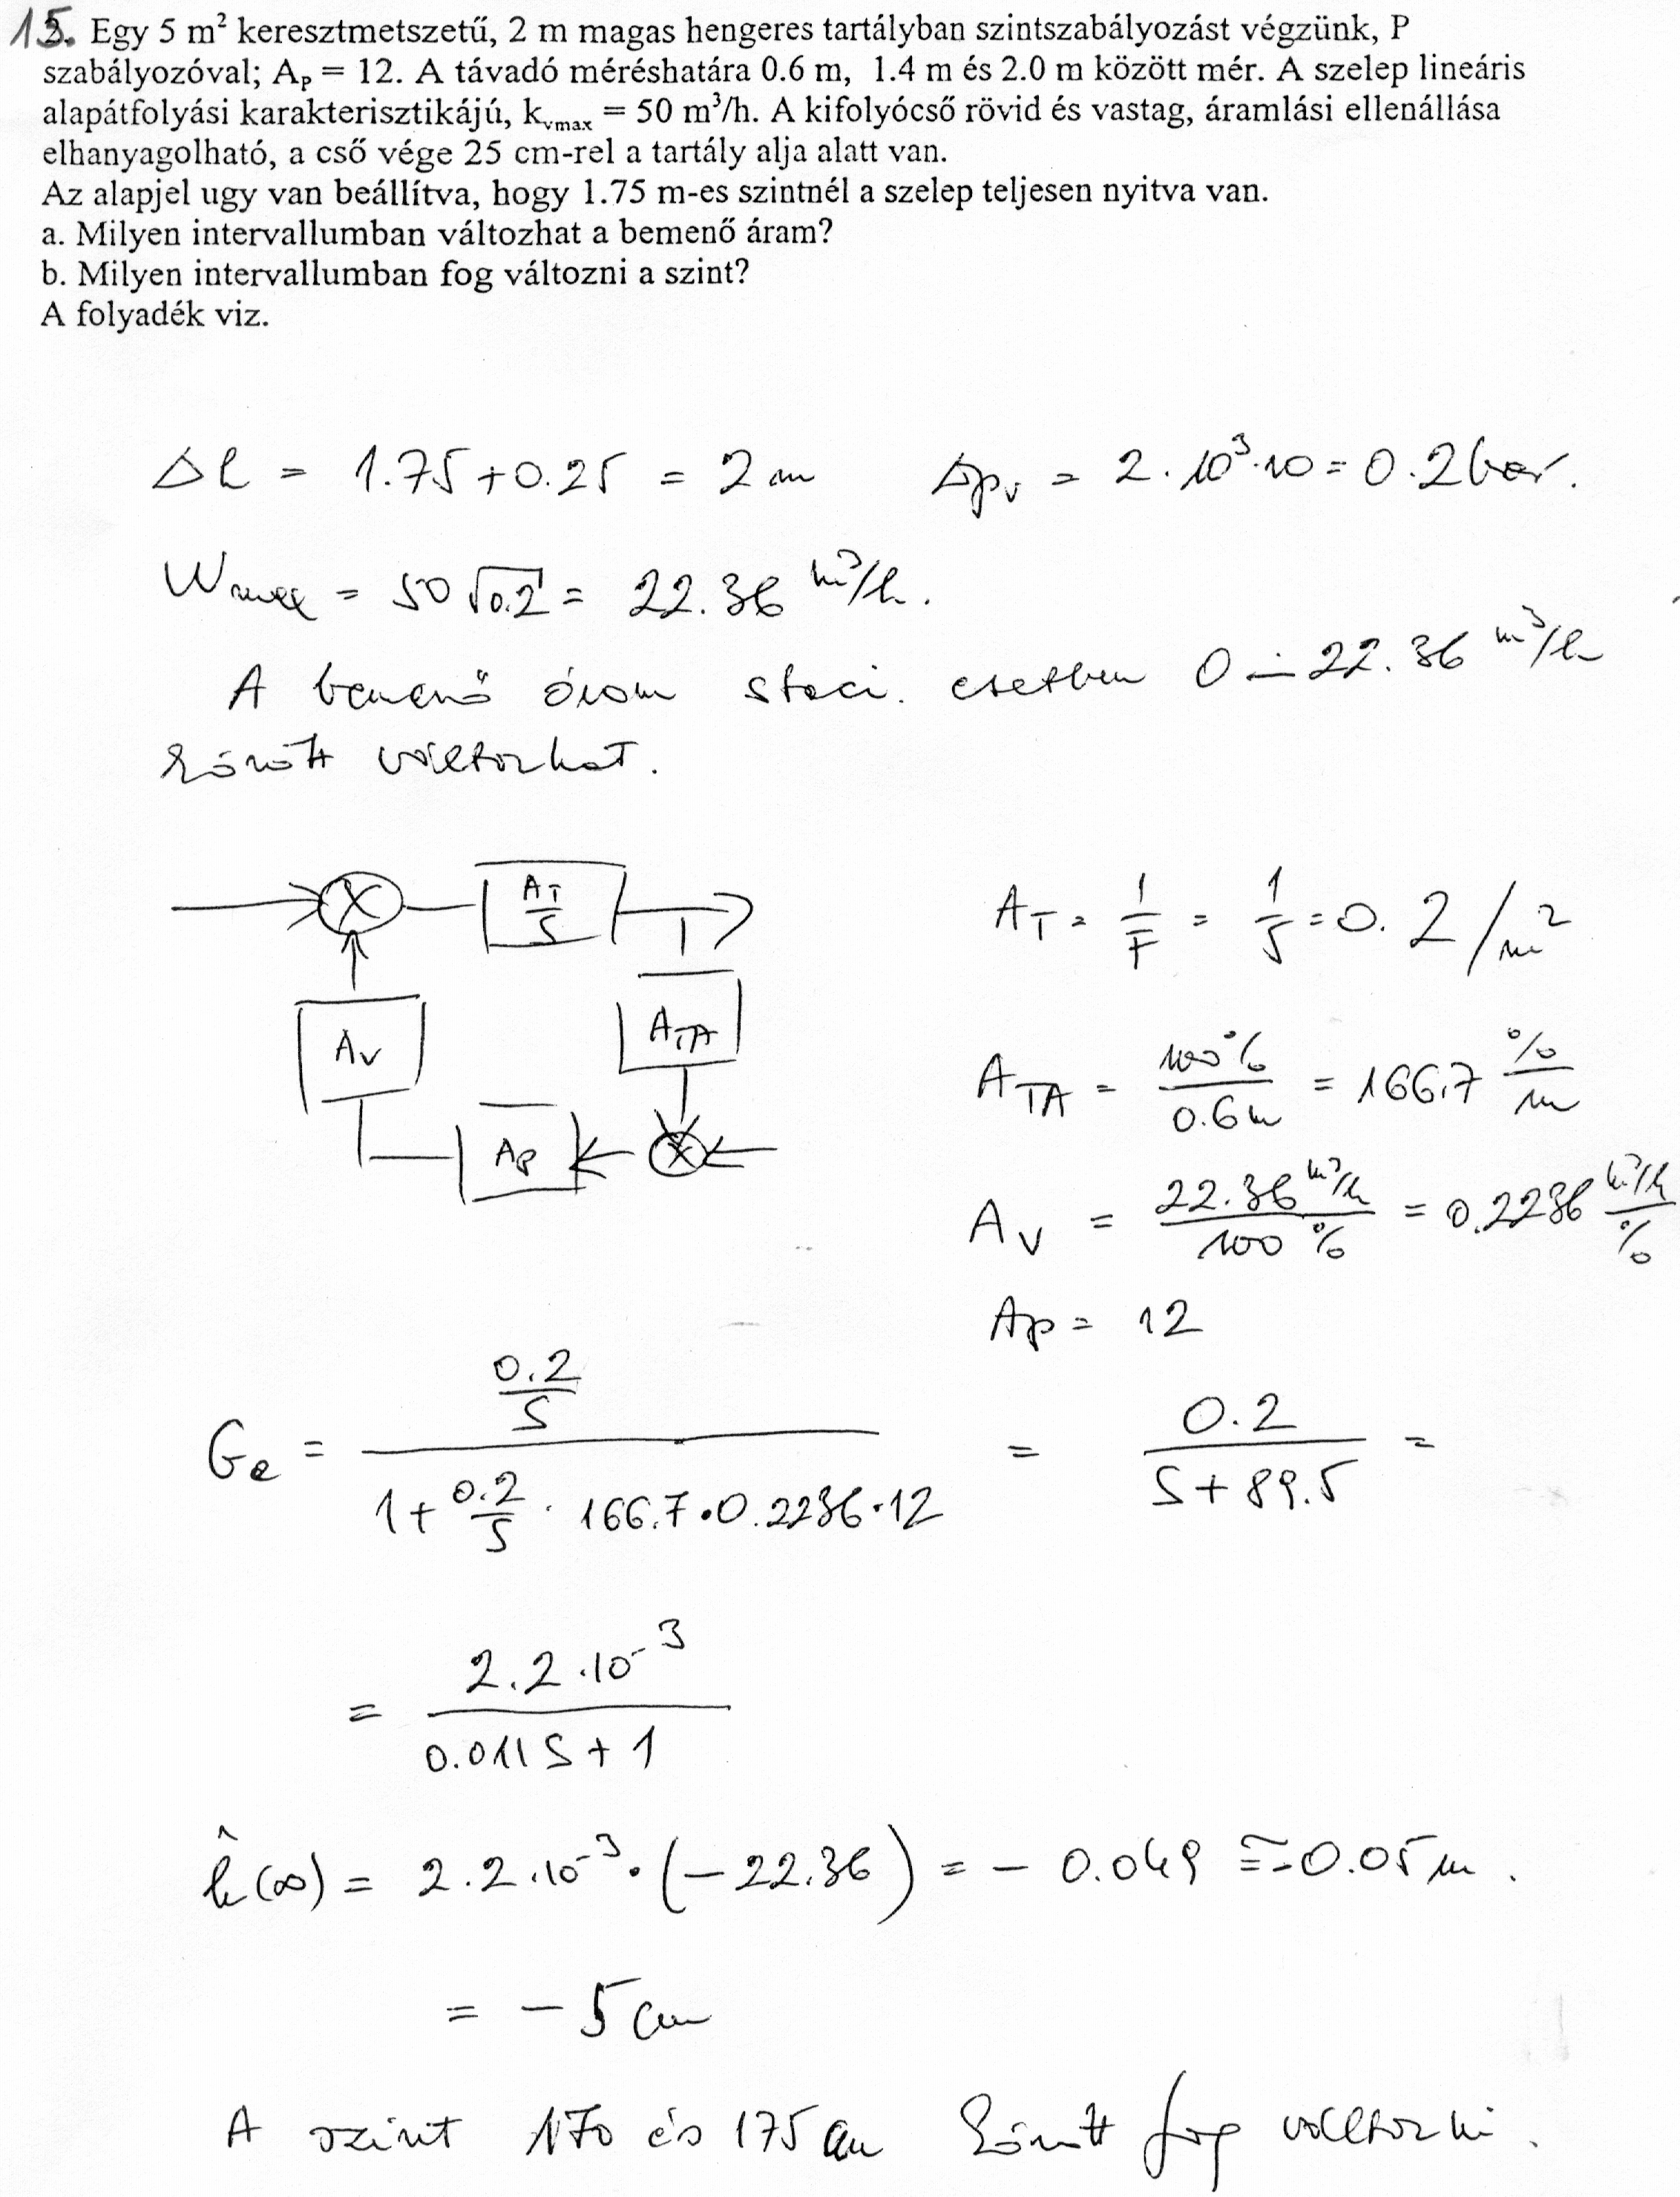 15. Egy 5 m² keresztmetszetű, 2 m magas hengeres tartályban szintszabályozást végzünk, P
szabályozóval; Aₚ = 12. A távadó méréshatára 0.6 m, 1.4 m és 2.0 m között mér. A szelep lineáris
alapátfolyási karakterisztikájú, kᵥₘₐₓ = 50 m³/h. A kifolyócső rövid és vastag, áramlási ellenállása
elhanyagolható, a cső vége 25 cm-rel a tartály alja alatt van.
Az alapjel ugy van beállítva, hogy 1.75 m-es szintnél a szelep teljesen nyitva van.
a. Milyen intervallumban változhat a bemenő áram?
b. Milyen intervallumban fog változni a szint?
A folyadék viz.
Δh = 1.75+0.25 = 2 m Δpᵥ = 2·10³·10 = 0.2 bar.
Wmax = 50 √0.2 = 22.36 m³/h.
A bemenő áram staci. esetben 0 ÷ 22.36 m³/h
között változhat.
X A_T/S A_T = 1/F = 1/5 = 0.2 /m²
A_V A_TA A_TA = 100%/0.6m = 166.7 %/m
A_P X A_V = 22.36 m³/h / 100 % = 0.2236 m³/h / %
Ap = 12
Ge = (0.2/S) / (1+ 0.2/S · 166.7·0.2236·12) = 0.2 / (S+89.5) =
= 2.2·10⁻³ / (0.011 S + 1)
ĥ(∞) = 2.2·10⁻³·(−22.36) = − 0.049 ≅ −0.05 m.
= −5 cm
A szint 170 és 175 cm között fog változni.